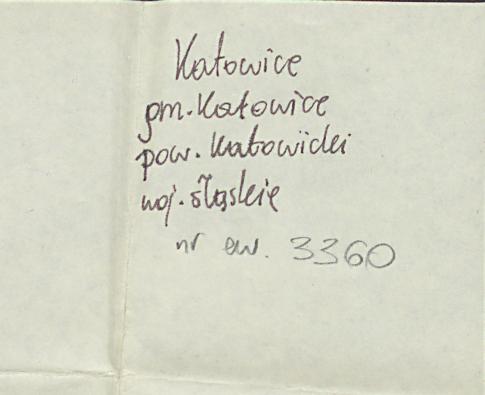 Katowice
gm. Katowice
pow. Katowicki
woj. śląskie
nr ew. 3360